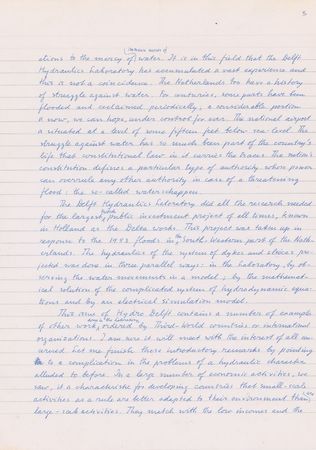 5
destructive motion of
ations to the mercy of water. It is in this field that the Delft
Hydraulics Laboratory has accumulated a vast experience and
this is not a coincidence. The Netherlands too have a history
of struggle against water. For centuries, some parts have been
flooded and reclaimed periodically, a considerable portion
is now, we can hope, under control for ever. The national airport
is situated at a level of some fifteen feet below sea-level. The
struggle against water has so much been part of the country's
life that constitutional law in it carries the traces. The nation's
constitution defines a particular type of authority whose power
can overrule any other authority in case of a threatening
flood: the so-called waterschappen.
The Delft Hydraulics Laboratory did all the research needed
for the largest public investment project of all times, known
in Holland as the Delta works. This project was taken up in
response to the 1953 floods in the South-Western part of the Neth-
erlands. The hydraulics of the system of dykes and sluices pro-
jected was done in three parallel ways: in the laboratory, by ob-
serving the water movements in a model; by the mathemat-
ical solution of the complicated system of hydrodynamic equa-
tions and by an electrical simulation model.
This issue of Hydro Delft contains a number of examples
done in the Laboratory
of other work, ordered by Third-World countries or international
organizations. I am sure it will meet with the interest of all con-
cerned. Let me finish these introductory remarks by pointing
to a complication in the problems of a hydraulic character
alluded to before. In a large number of economic activities, we
saw, it is characteristic for developing countries that small-scale
activities as a rule are better adapted to their environment than
large-scale activities. They match with the low incomes and the